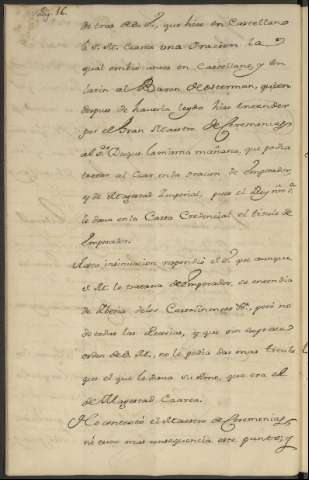 Pag. 16.
de tras de D. Sr., que hice en Castellano
à S. M. Czarea una oracion la
qual embiò antes en Castellano y en
latin al Baron de Osterman, quien
despues de haverla leydo hizo entender
por el Gran Maestro de Ceremonias
al Sr. Duque la misma mañana, que podia
tratar al Czar en la oracion de Emperador
y de Magestad Imperial, pues el Rey nro. Sr.
le dava en la Carta Credencial el titulo de
Emperador.
A esta insinuacion respondiò el Sr. que aunque
el M. le tratava de Emperador, se entendia
de Siberia, delos Casanienses &a., pero no
de todas las Rusias, y que sin expressa
orden de S. M., no le podia dar mas titulo
que el que le dava su Amo, que era el
de Magestad Czarea.
No contestò el Maestro de Ceremonias
ni tuvo mas consequencia este punto; y